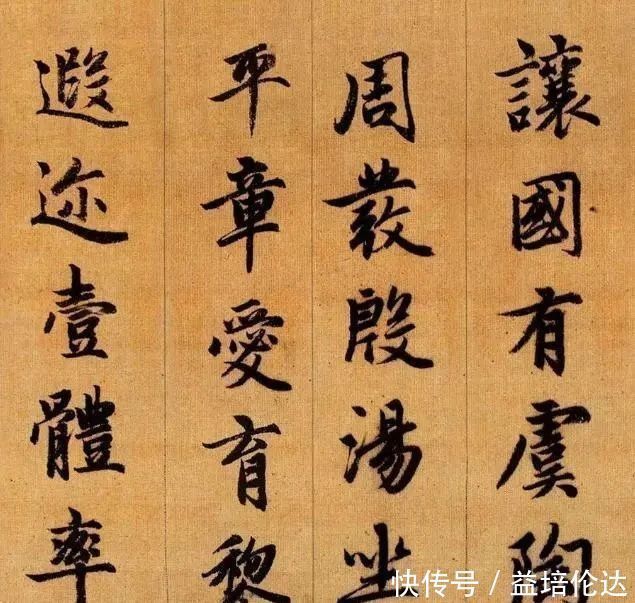 讓國有虞陶
周發殷湯坐
平章愛育黎
遐迩壹體率
快传号 / 益培伦达